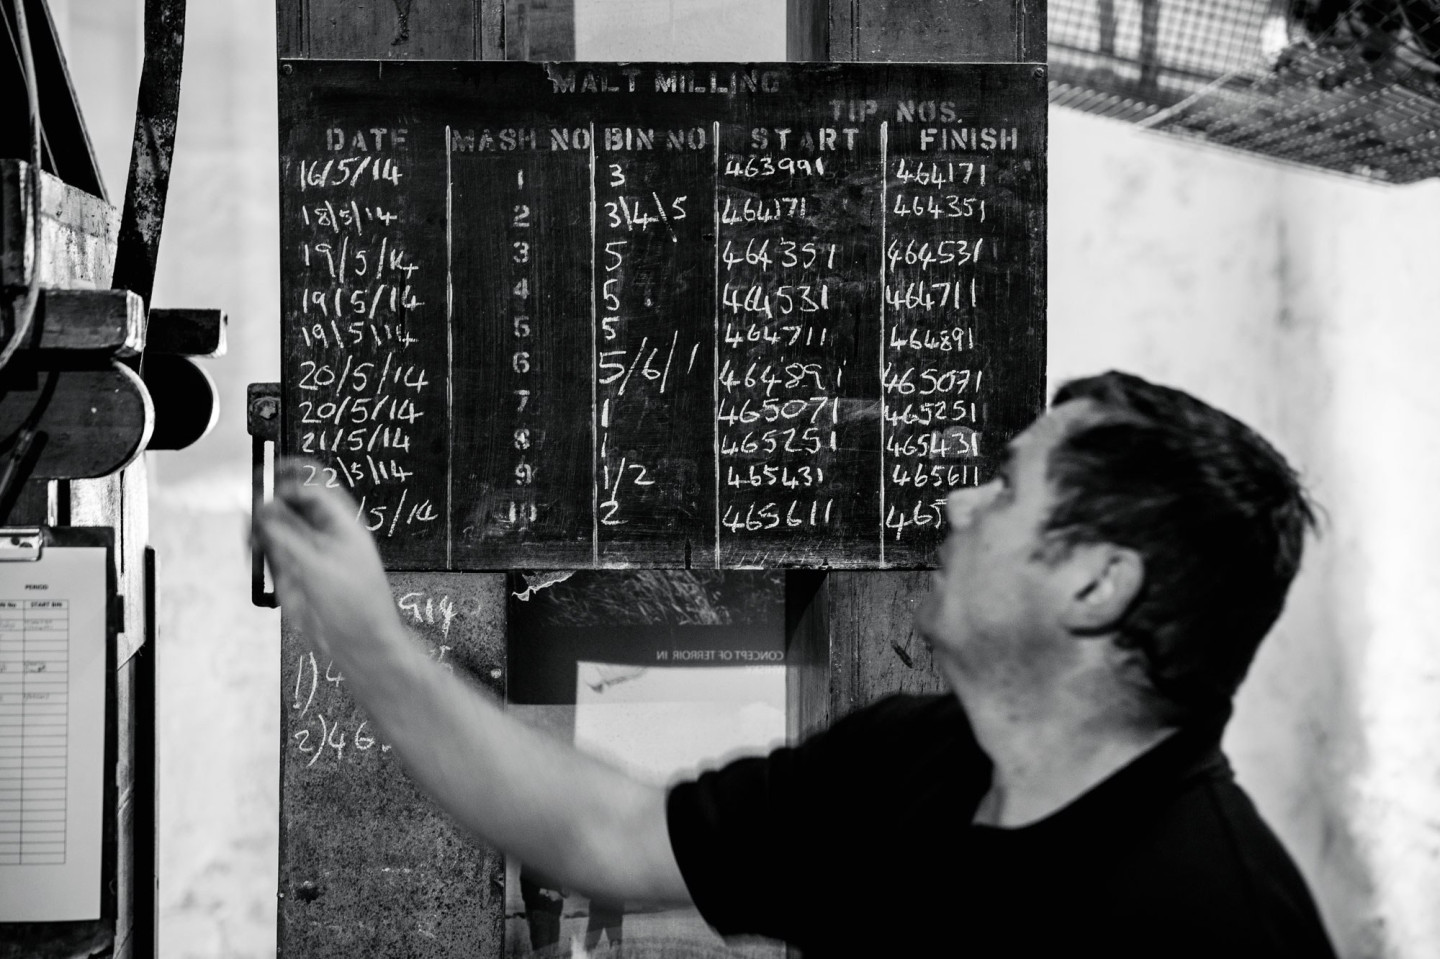 MALT MILLING
TIP NOS.
DATE MASH NO BIN NO START FINISH
16/5/14 1 3 463991 464171
18\5\14 2 3\4\5 464171 464351
19/5/14 3 5 464351 464531
19/5/14 4 5 464531 464711
19/5\14 5 5 464711 464891
20/5/14 6 5/6/1 464891 465071
20/5/14 7 1 465071 465251
21/5/14 8 1 465251 465431
22\5\14 9 1/2 465431 465611
/5/14 10 2 465611 465
1) 4
2) 46
PERIOD
START BIN
CONCEPT OF TERROIR IN